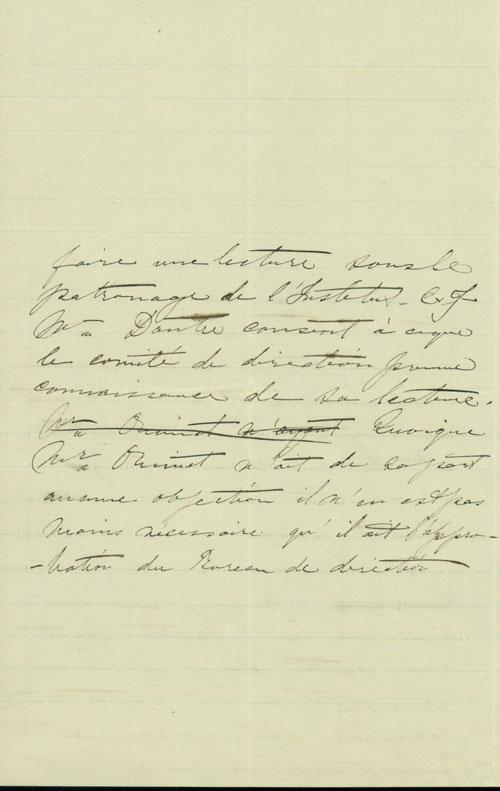 faire une lecture sous le
patronage de l'Institut. C. f
Mr. Doutre consent à ceque
le comité de direction prenne
connaissance de sa lecture.
Mr. Ouimet n'ayant Quoique
Mr. Ouimet n'ait de sa part
aucune objection il n'en est pas
moins nécessaire qu'il ait l'appro-
-bation du Bureau de direction